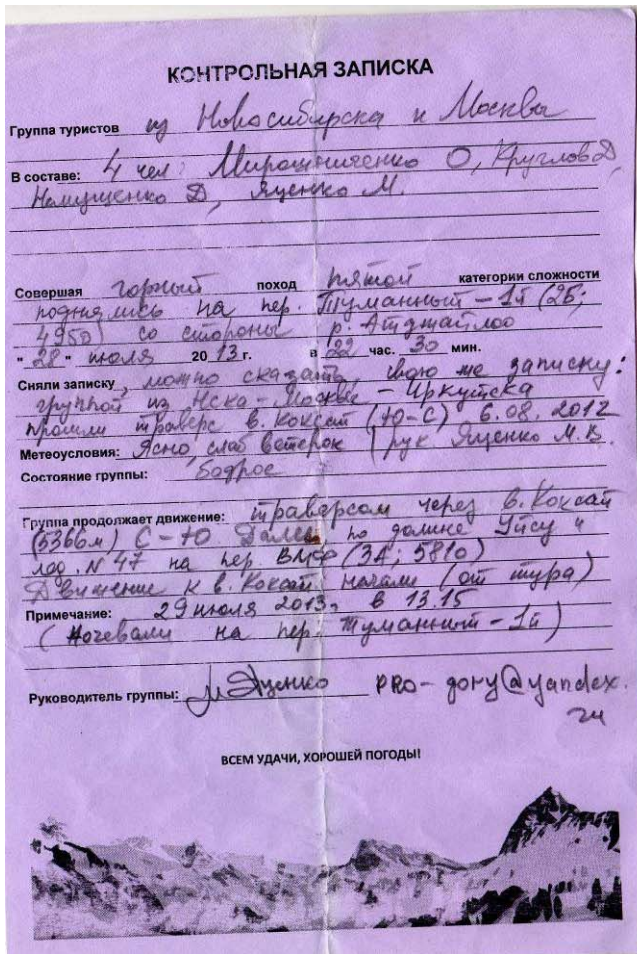 КОНТРОЛЬНАЯ ЗАПИСКА
Группа туристов из Новосибирска и Москвы
В составе: 4 чел: Мирошниченко О, Круглов Д,
Немущенко Д, Яценко М.
Совершая горный поход пятой категории сложности
поднялись на пер. Туманный-1й (2Б;
4950) со стороны р. Атджайлоо
"28" июля 2013 г. в 22 час. 30 мин.
Сняли записку, можно сказать, свою же записку:
группой из Нска-Москвы-Иркутска
прошли траверс в. Коксай (Ю-С) 6.08.2012
Метеоусловия: Ясно, слаб ветерок (рук Яценко М.В.
Состояние группы: бодрое
Группа продолжает движение: траверсом через в. Коксай
(5366м) С-Ю Далее по долине Уйсу и
лед. N47 на пер. ВМФ (3А; 5810)
Движение к в. Коксай начали (от тура)
Примечание: 29 июля 2013г в 13.15
(Ночевали на пер. Туманный-1й)
Руководитель группы: Яценко PRO-gory@yandex.
ru
ВСЕМ УДАЧИ, ХОРОШЕЙ ПОГОДЫ!